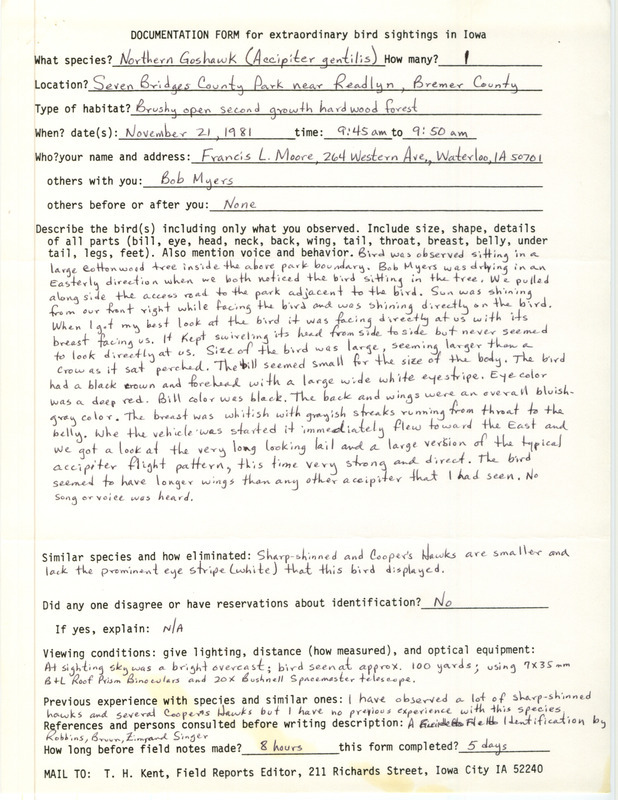 DOCUMENTATION FORM for extraordinary bird sightings in Iowa
What species? Northern Goshawk (Accipiter gentilis) How many? 1
Location? Seven Bridges County Park near Readlyn, Bremer County
Type of habitat? Brushy open second growth hardwood forest
When? date(s): November 21, 1981 time: 9:45 am to 9:50 am
Who? your name and address: Francis L. Moore, 264 Western Ave., Waterloo, IA 50701
others with you: Bob Myers
others before or after you: None
Describe the bird(s) including only what you observed. Include size, shape, details
of all parts (bill, eye, head, neck, back, wing, tail, throat, breast, belly, under
tail, legs, feet). Also mention voice and behavior. Bird was observed sitting in a
large cottonwood tree inside the above park boundary. Bob Myers was driving in an
Easterly direction when we both noticed the bird sitting in the tree. We pulled
along side the access road to the park adjacent to the bird. Sun was shining
from our front right while facing the bird and was shining directly on the bird.
When I got my best look at the bird it was facing directly at us with its
breast facing us. It kept swircling its head from side to side but never seemed
to look directly at us. Size of the bird was large, seeming larger than a
Crow as it sat perched. The bill seemed small for the size of the body. The bird
had a black crown and forehead with a large wide white eyestripe. Eye color
was a deep red. Bill color was black. The back and wings were an overall bluish-
gray color. The breast was whitish with grayish streaks running from throat to the
belly. Whe the vehicle was started it immediately flew toward the East and
we got a look at the very long looking tail and a large version of the typical
accipiter flight pattern, this time very strong and direct. The bird
seemed to have longer wings than any other accipiter that I had seen. No
song or voice was heard.
Similar species and how eliminated: Sharp-shinned and Cooper's Hawks are smaller and
lack the prominent eye stripe (white) that this bird displayed.
Did any one disagree or have reservations about identification? No
If yes, explain: N/A
Viewing conditions: give lighting, distance (how measured), and optical equipment:
At sighting sky was a bright overcast; bird seen at approx. 100 yards; using 7x35 mm
B+L Roof Prism Binoculars and 20x Bushnell Spacemaster telescope.
Previous experience with species and similar ones: I have observed a lot of sharp-shinned
hawks and several Cooper's Hawks but I have no previous experience with this species.
References and persons consulted before writing description: A Guide to Field Identification by
Robbins, Bruun, Zim and Singer
How long before field notes made? 8 hours this form completed? 5 days
MAIL TO: T. H. Kent, Field Reports Editor, 211 Richards Street, Iowa City IA 52240